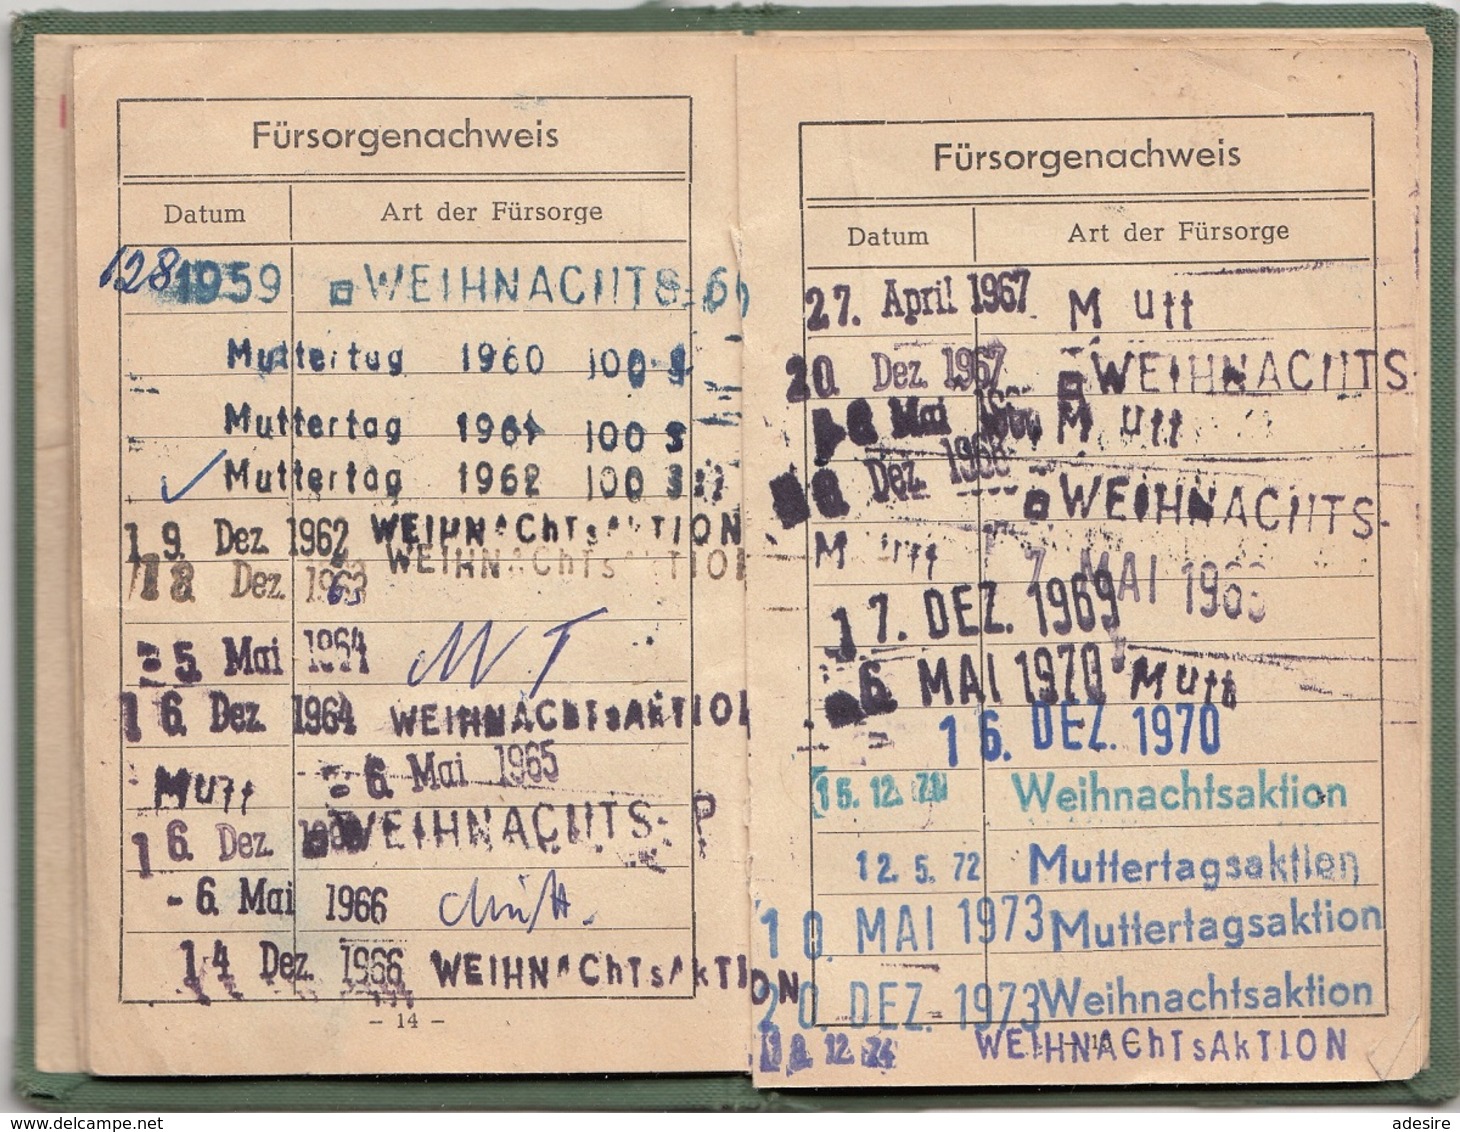 Fürsorgenachweis
Datum Art der Fürsorge
128 1959 WEIHNACHTS-
Muttertag 1960 100 S
Muttertag 1961 100 S
Muttertag 1962 100 S
19. Dez. 1962 WEIHNAChTsAkTION
18. Dez. 1963 WEIHNAChTsAkTION
- 5. Mai 1964 MT
16. Dez. 1964 WEIHNAChTsAkTION
Mutt - 6. Mai 1965
16. Dez. WEIHNACHTS-
- 6. Mai 1966
14. Dez. 1966 WEIHNAChTsAkTION
- 14 -
Fürsorgenachweis
Datum Art der Fürsorge
27. April 1967 Mutt
20. Dez. 1967 WEIHNACHTS-
Mai Mutt
Dez. 1968 WEIHNACHTS-
Mutt 7. MAI
17. DEZ. 1969
6. MAI 1970 Mutt
16. DEZ. 1970
15. 12. 71 Weihnachtsaktion
12. 5. 72 Muttertagsaktion
10. MAI 1973 Muttertagsaktion
20. DEZ. 1973 Weihnachtsaktion
12. 74 WEIHNAChTsAkTION
- 15 -
www.delcampe.net adesire